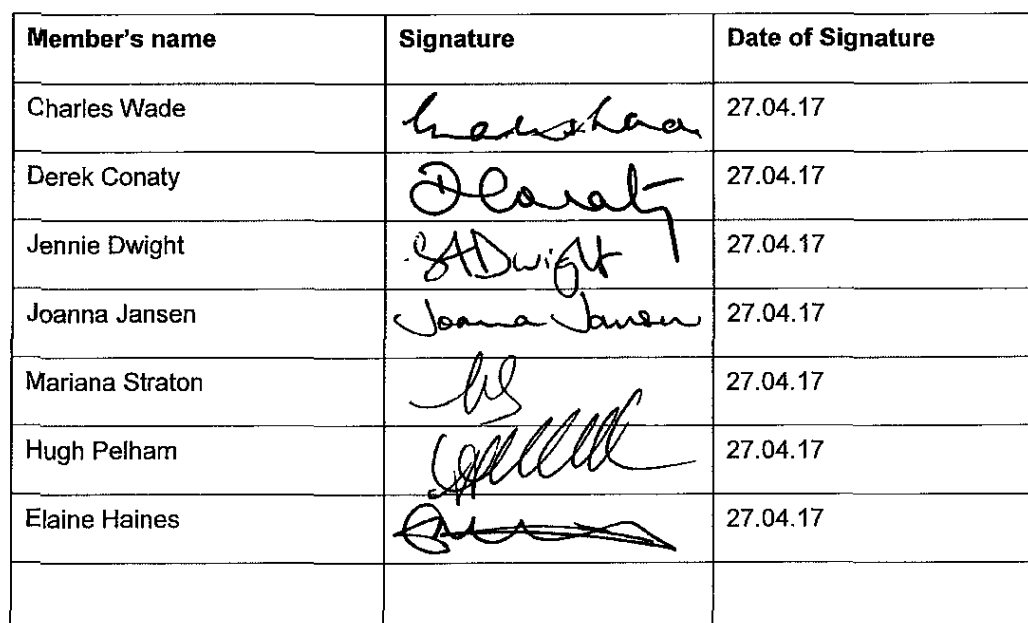 Member's name Signature Date of Signature
Charles Wade 27.04.17
Derek Conaty D Conaty 27.04.17
Jennie Dwight Dwight 27.04.17
Joanna Jansen Joanna Jansen 27.04.17
Mariana Straton 27.04.17
Hugh Pelham 27.04.17
Elaine Haines 27.04.17